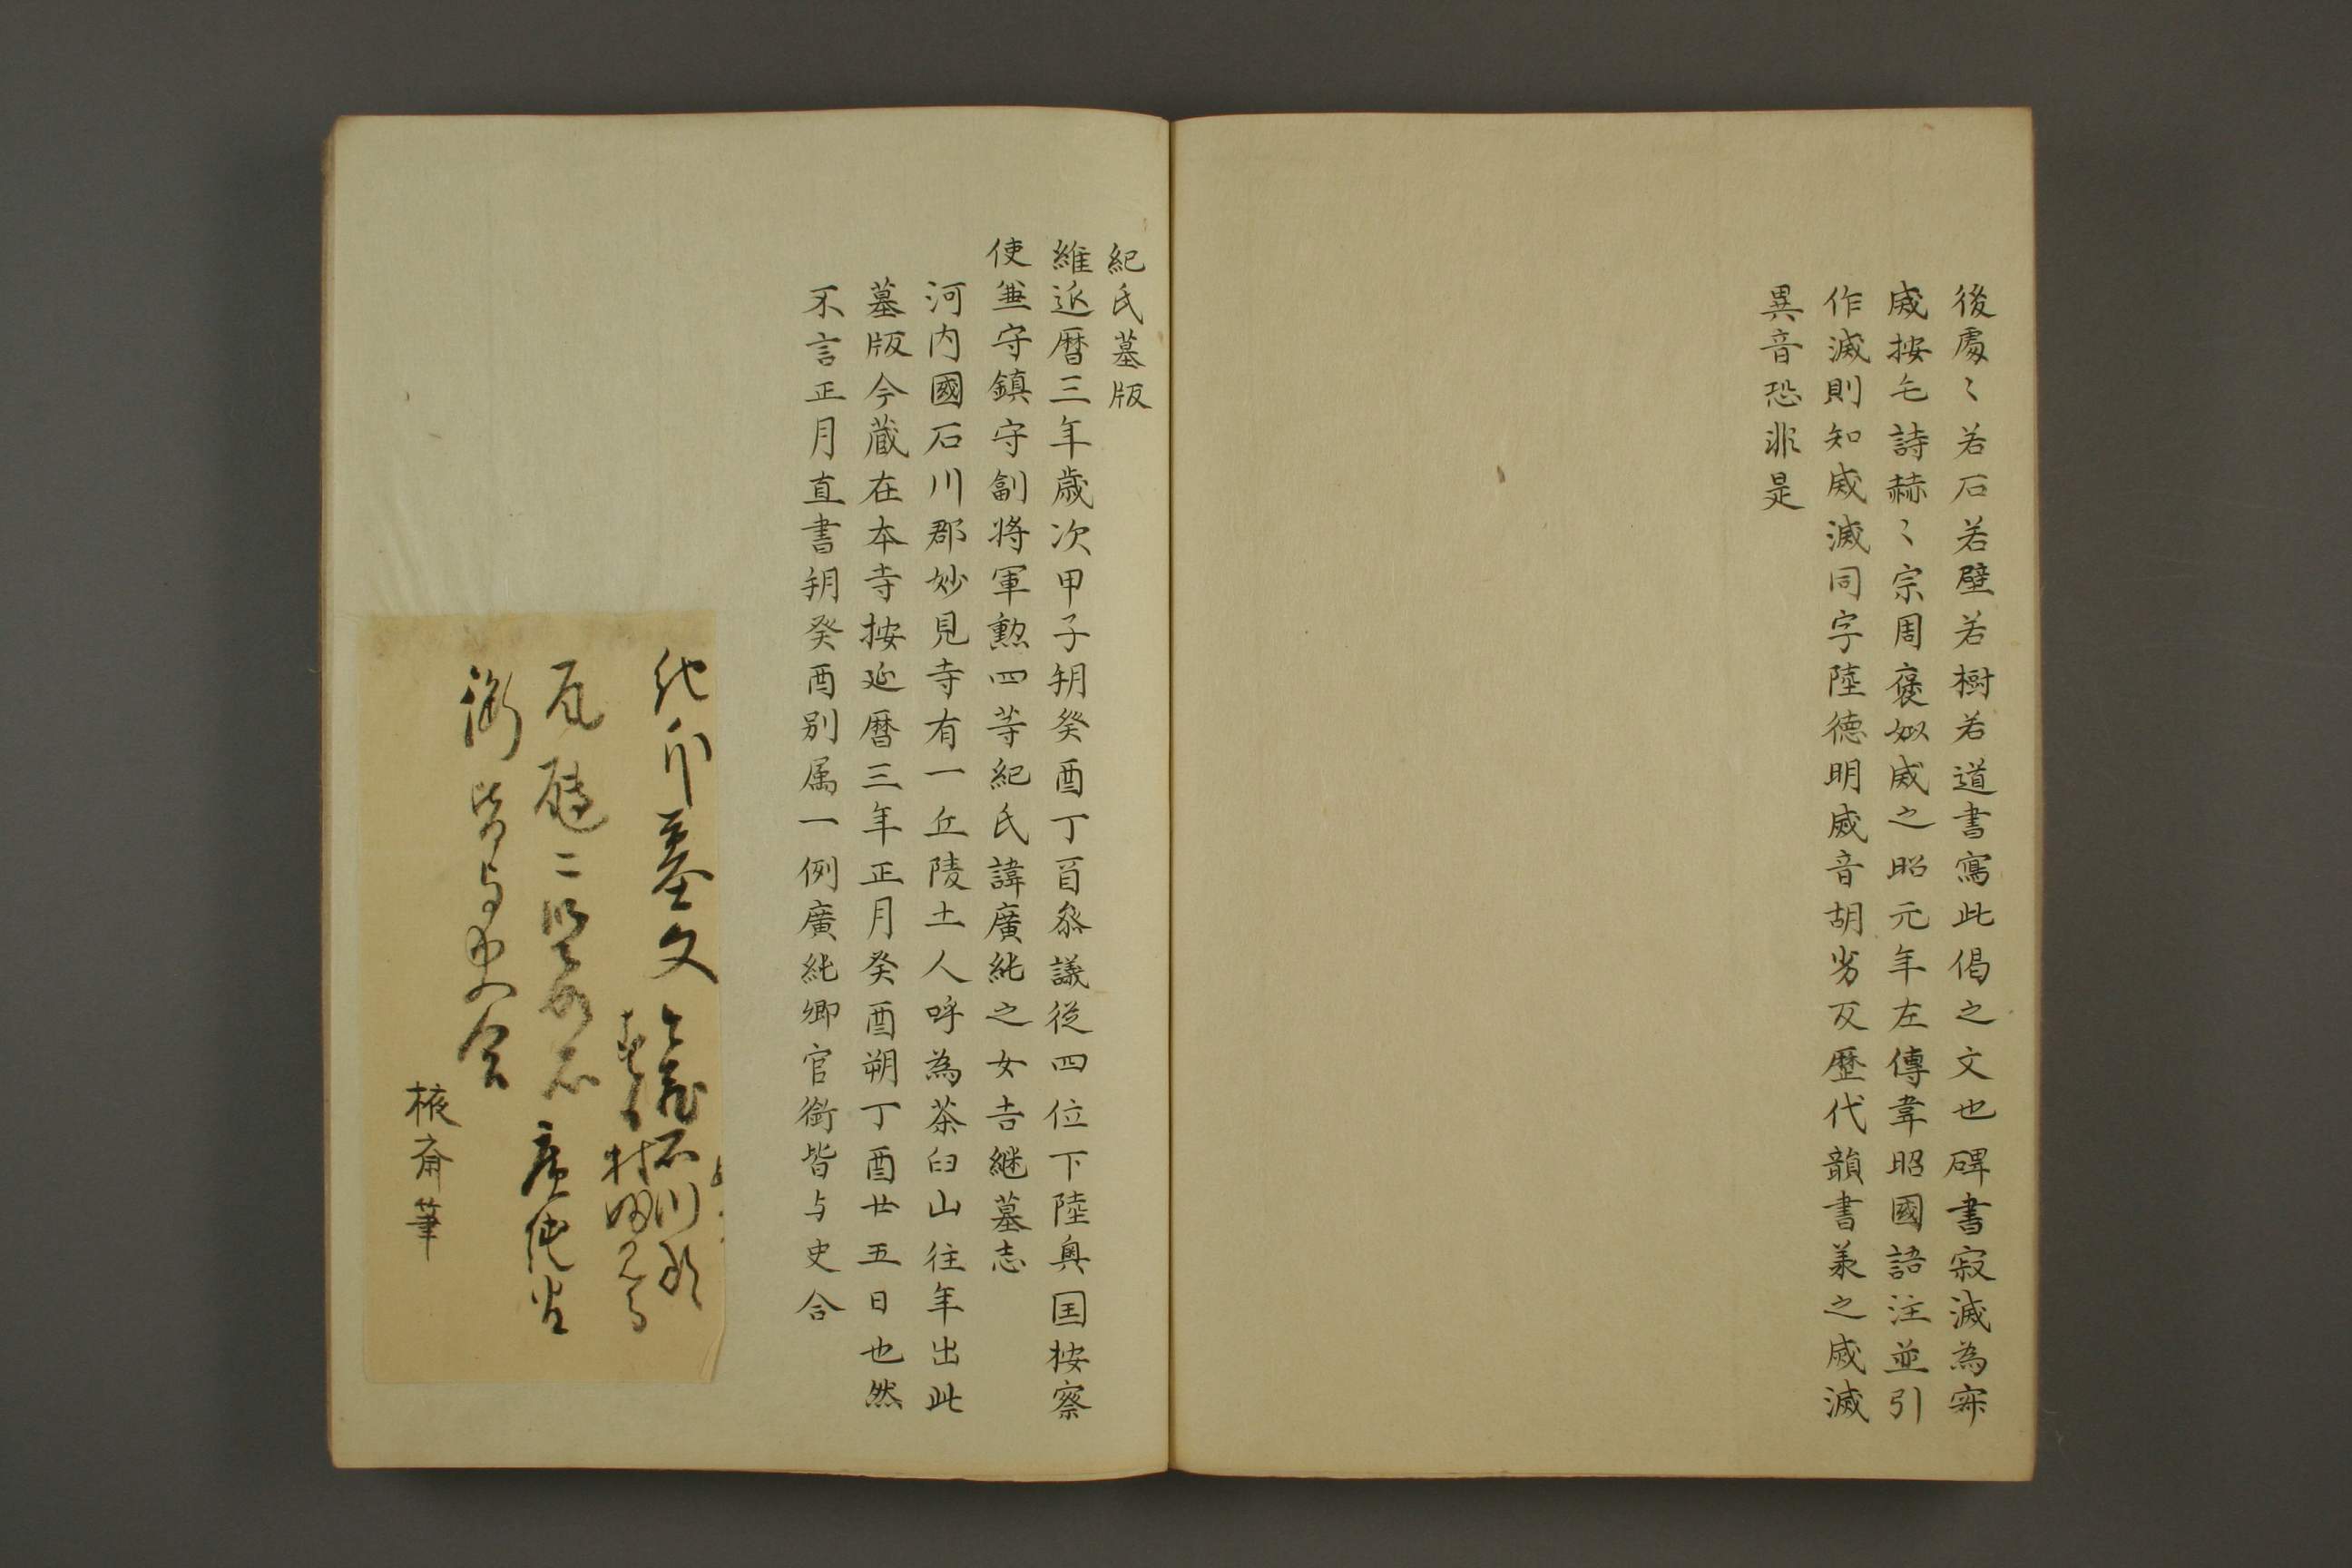 後處〻若石若壁若樹若道書寫此偈之文也碑書寂滅為㝥
烕按毛詩赫〻宗周褒姒烕之昭元年左傳韋昭國語注並引
作滅則知烕滅同字陸德明烕音胡劣反歷代韻書義之烕滅
異音恐非是
紀氏墓版
維延暦三年歳次甲子朔癸酉丁酉叅議従四位下陸奥国按察
使兼守鎮守副将軍勲四等紀氏諱廣純之女吉継墓志
河内國石川郡妙見寺有一丘陵土人呼為茶臼山往年出此
墓版今蔵在本寺按延暦三年正月癸酉朔丁酉廿五日也然
不言正月直書朔癸酉別属一例廣純卿官銜皆与史合
墓文
石川郡
村妙見寺
廣純官
銜皆与史合
棭斎筆